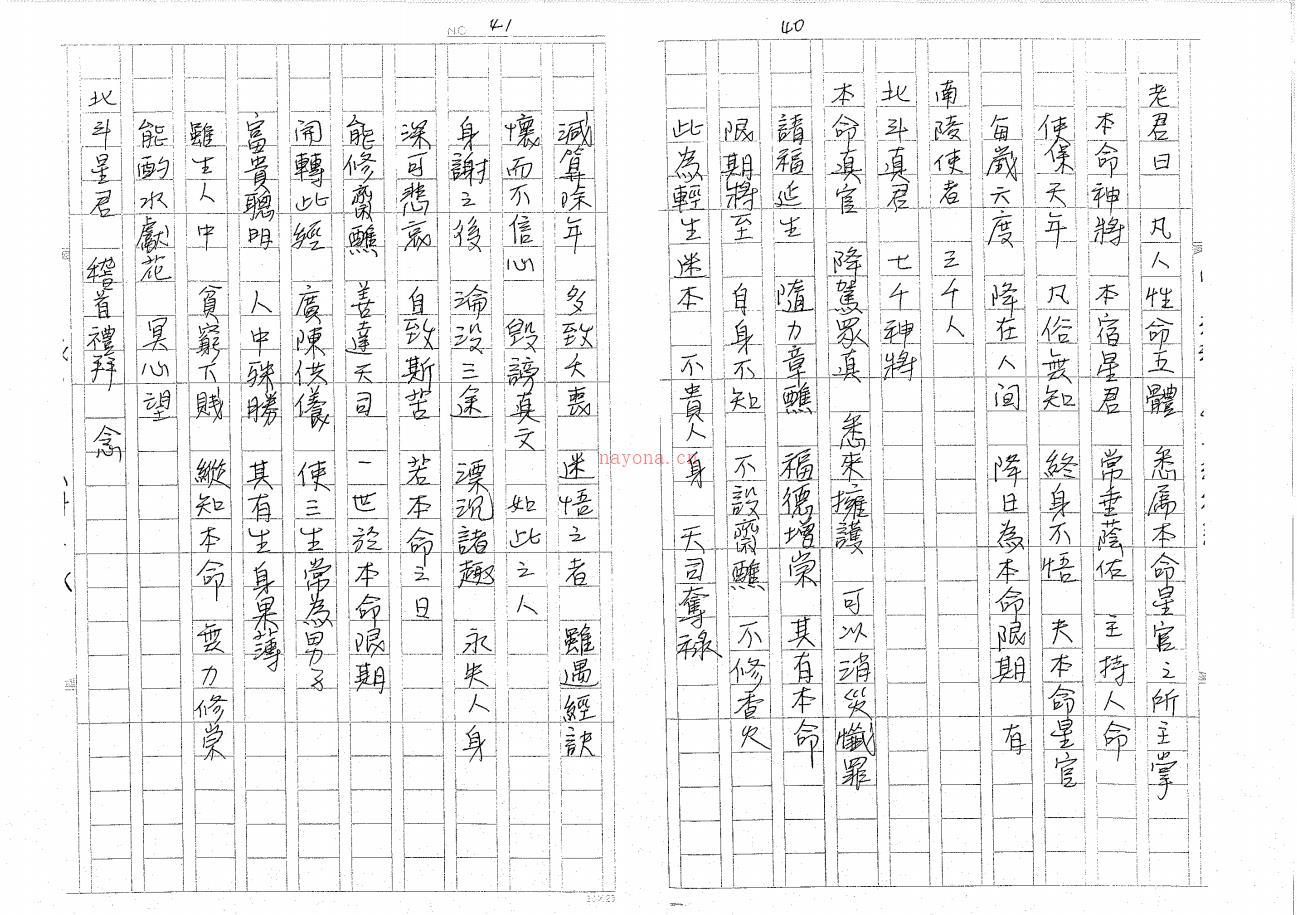 40
老君曰 凡人性命五體 悉屬本命星官之所主掌
本命神將 本宿星君 常垂蔭佑 主持人命
使保天年 凡俗無知 終身不悟 夫本命星官
每歲六度 降在人间 降日為本命限期 有
南陵使者 三千人
北斗真君 七千神將
本命真官 降駕眾真 悉來擁護 可以消災懺罪
請福延生 隨力章醮 福德增崇 其有本命
限期將至 自身不知 不設齋醮 不修香火
此為輕生迷本 不貴人身 天司奪祿
NO. 41
減算除年 多致夭喪 迷悟之者 雖遇經訣
懷而不信心 毀謗真文 如此之人
身謝之後 淪没三途 漂沉諸趣 永失人身
深可悲哀 自致斯苦 若本命之日
能修齋醮 善達天司 一世於本命限期
開轉此經 廣陳供養 使三生常為男子
富貴聰明 人中殊勝 其有生身果薄
雖生人中 貧窮下賤 縱知本命 無力修崇
能酌水獻花 冥心望
北斗星君 稽首禮拜 念
nayona.cn